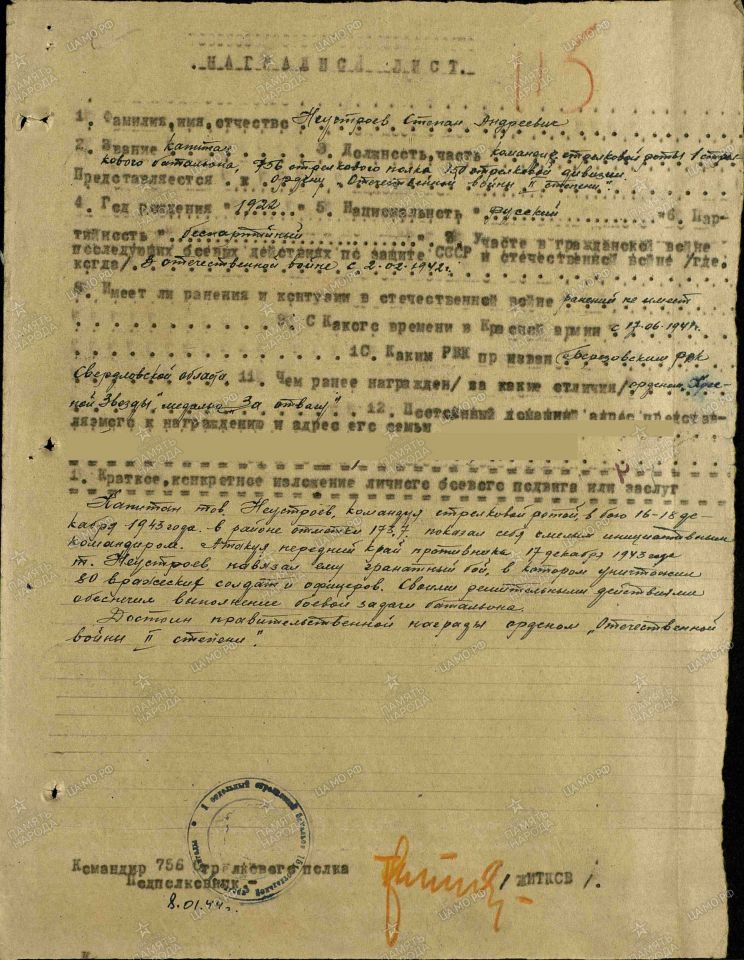 115
НАГРАДНОЙ ЛИСТ.
1. Фамилия, имя, отчество Неустроев Степан Андреевич
2. Звание капитан 3. Должность, часть командир стрелковой роты 1 стрел-
кового батальона, 756 стрелкового полка 150 стрелковой дивизии.
Представляется к ордену "Отечественной войны II степени".
4. Год рождения "1922" 5. Национальность "Русский" 6. Пар-
тийность "беспартийный" 8. Участе в гражданской войне
последующих боевых действиях по защите СССР и отечественной войне /где,
когда/ В отечественной войне с 2-02-1942г.
8. Имеет ли ранения и контузии в отечественной войне ранений не имеет
9. С Какого времени в Красной армии с 17-06-1941г.
10. Каким РВК призван Березовским РВК
Свердловской области 11. Чем ранее награжден/ за какие отличия/ орденом "Крас-
ной Звезды" медалью "За отвагу" 12. Постоянный домашний адрес представ-
ляемого к награждению и адрес его семьи
1. Краткое, конкретное изложение личного боевого подвига или заслуг
Капитан тов Неустроев, командуя стрелковой ротой в бою 16-18 де-
кабря 1943 года в районе отметки 173,7, показал себя смелым инициативным
командиром. Атакуя передний край противника 17 декабря 1943 года
т. Неустроев, навязал ему гранатный бой, в котором уничтожил
80 вражеских солдат и офицеров. Своими решительными действиями
обеспечил выполнение боевой задачи батальона.
Достоин правительственной награды орденом "Отечественной
войны II степени".
Командир 756 Стрелкового полка
Подполковник-
/ ЖИТКОВ /.
8.01.44г.